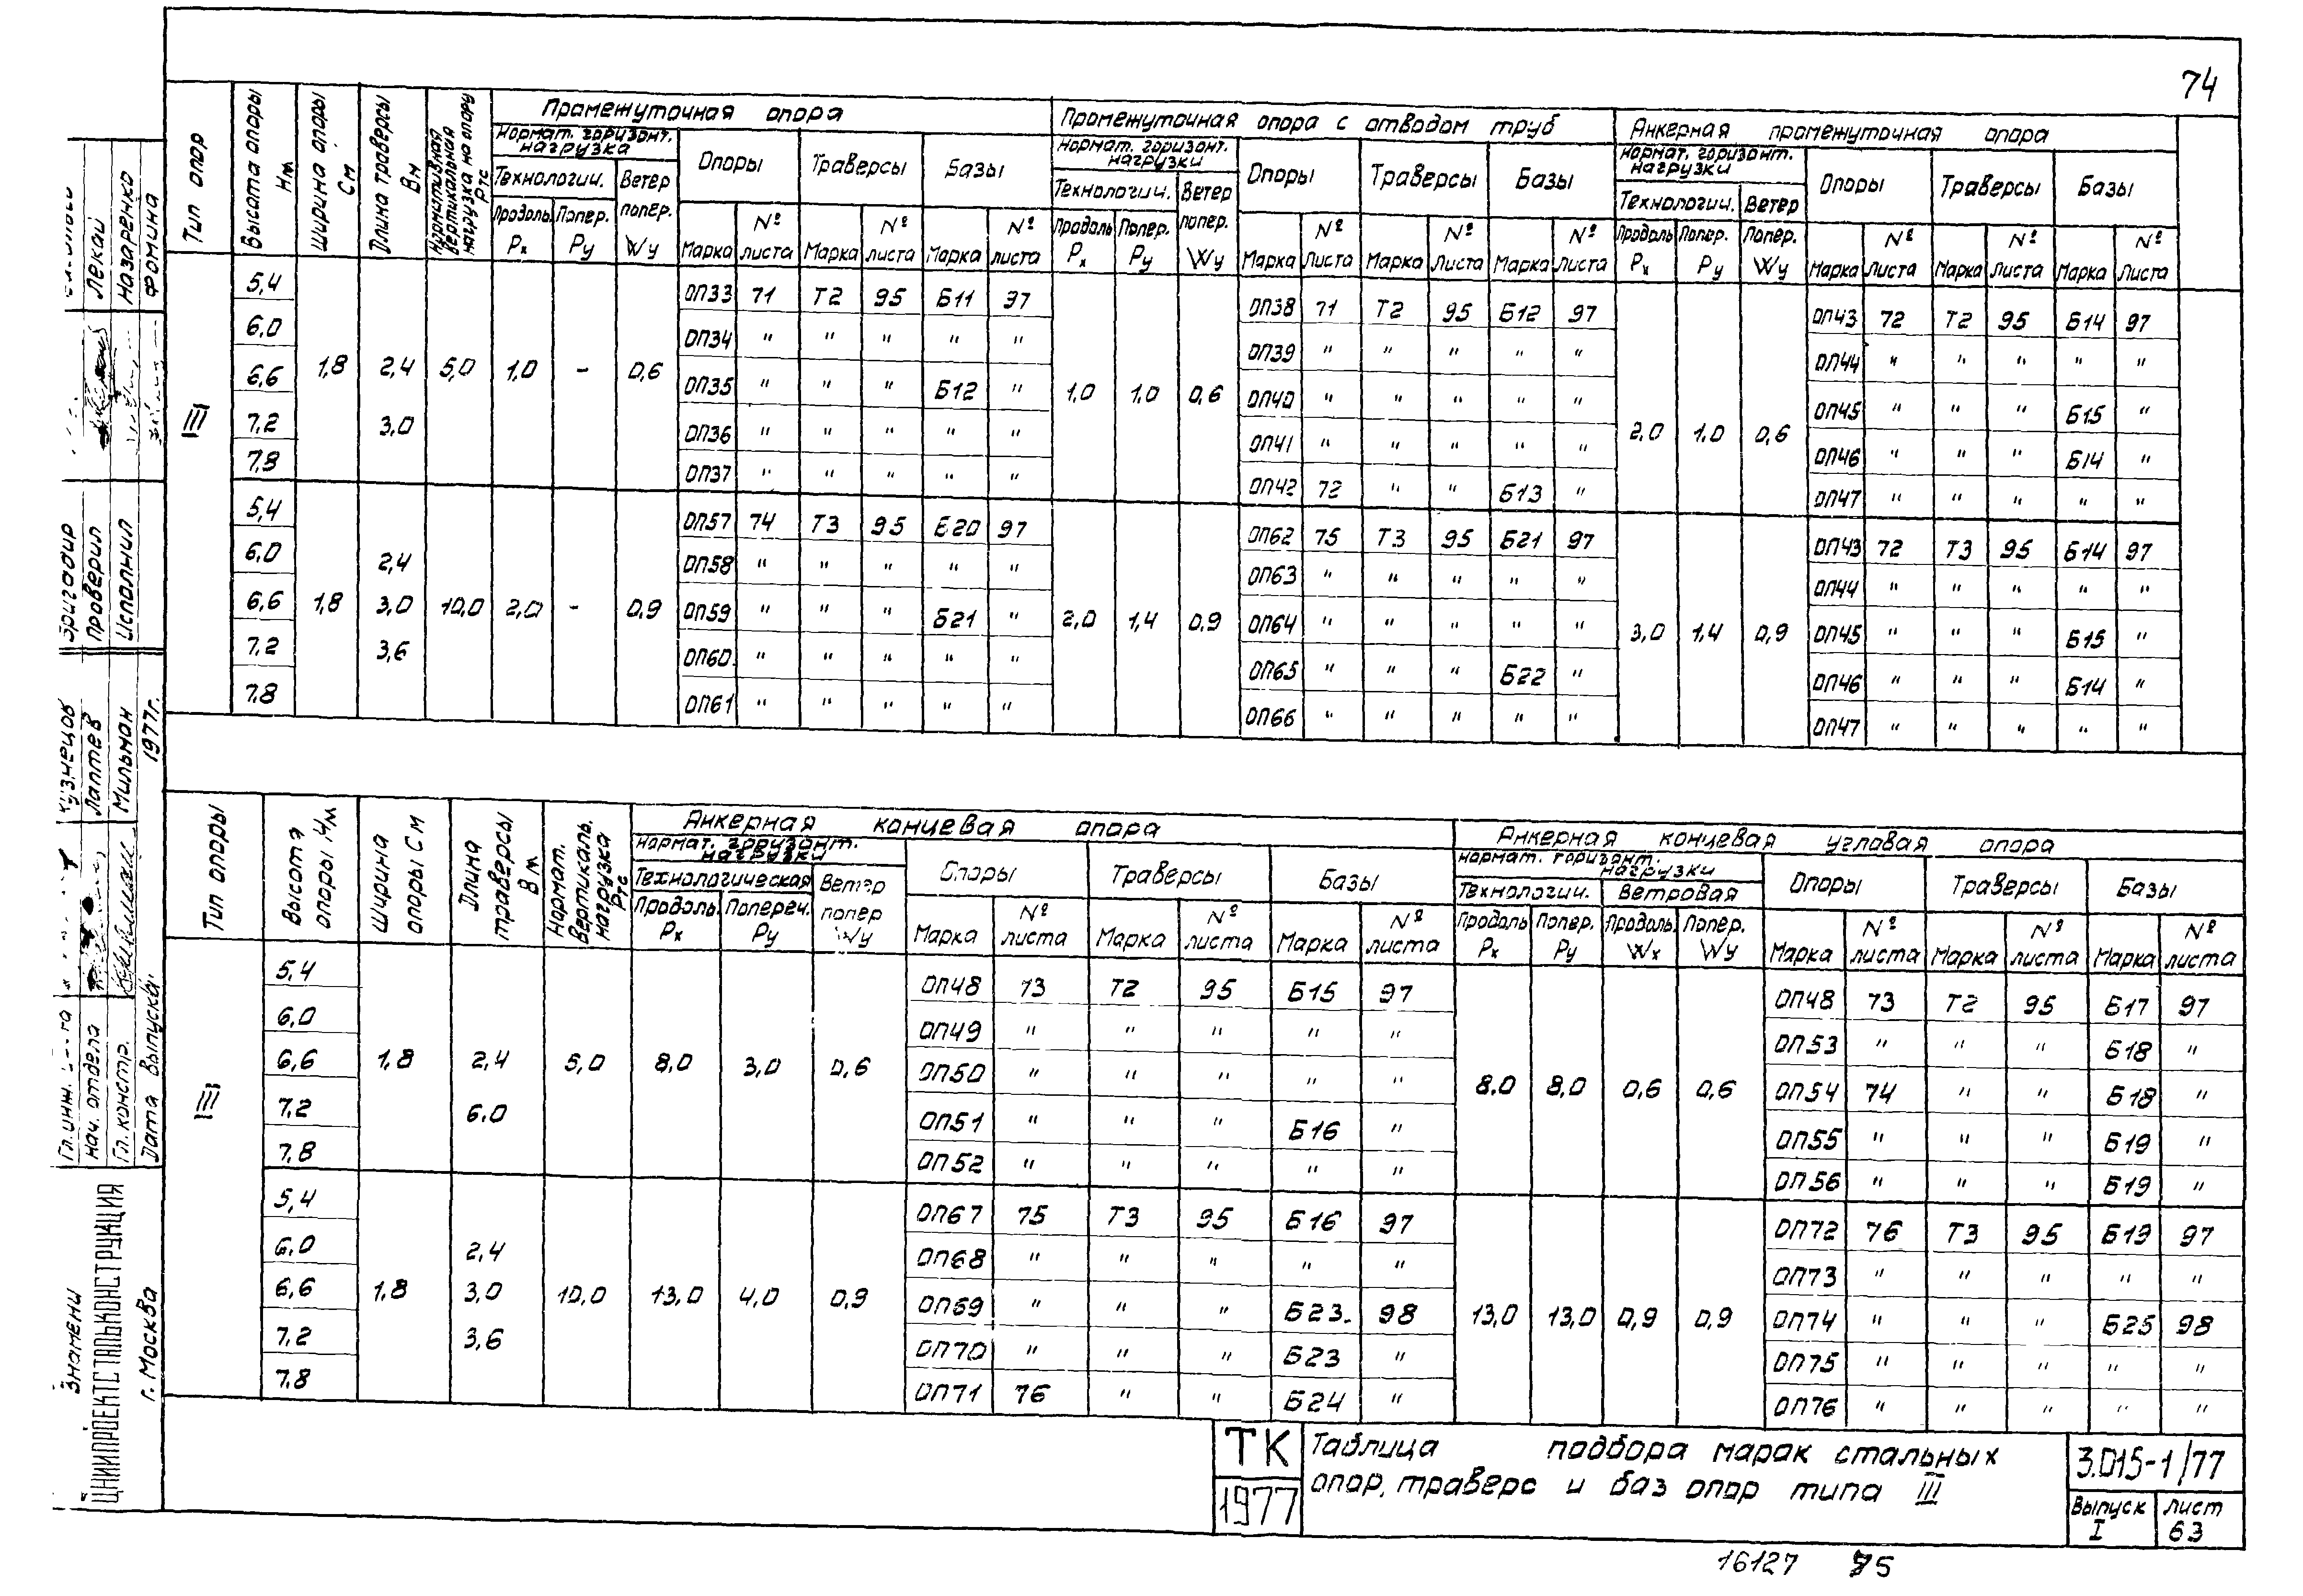 74
Тип опор | Высота опоры Нм | Ширина опоры См | Длина траверсы Вм | Нормативная вертикальная нагрузка на опору Ртс | Промежуточная опора | Промежуточная опора с отводом труб | Анкерная промежуточная опора
Нормат. горизонт. нагрузка | Опоры | Траверсы | Базы | Нормат. горизонт. нагрузки | Опоры | Траверсы | Базы | Нормат. горизонт. нагрузки | Опоры | Траверсы | Базы
Технологич. | Ветер попер. Wy | Технологич. | Ветер попер. Wy | Технологич. | Ветер Попер. Wy
Продоль. Рх | Попер. Ру | Марка | № листа | Марка | № листа | Марка | № листа | Продоль Рх | Попер. Ру | Марка | № Листа | Марка | № Листа | Марка | № Листа | Продоль Рх | Попер. Ру | Марка | № Листа | Марка | № Листа | Марка | № Листа
III | 1,8 | 2,4 3,0 | 5,0 | 1,0 | - | 0,6 | 1,0 | 1,0 | 0,6 | 2,0 | 1,0 | 0,6
5,4 | ОП33 | 71 | Т2 | 95 | Б11 | 97 | ОП38 | 71 | Т2 | 95 | Б12 | 97 | ОП43 | 72 | Т2 | 95 | Б14 | 97
6,0 | ОП34 | " | " | " | " | " | ОП39 | " | " | " | " | " | ОП44 | " | " | " | " | "
6,6 | ОП35 | " | " | " | Б12 | " | ОП40 | " | " | " | " | " | ОП45 | " | " | " | Б15 | "
7,2 | ОП36 | " | " | " | " | " | ОП41 | " | " | " | " | " | ОП46 | " | " | " | Б14 | "
7,8 | ОП37 | " | " | " | " | " | ОП42 | 72 | " | " | Б13 | " | ОП47 | " | " | " | " | "
1,8 | 2,4 3,0 3,6 | 10,0 | 2,0 | - | 0,9 | 2,0 | 1,4 | 0,9 | 3,0 | 1,4 | 0,9
5,4 | ОП57 | 74 | Т3 | 95 | Б20 | 97 | ОП62 | 75 | Т3 | 95 | Б21 | 97 | ОП43 | 72 | Т3 | 95 | Б14 | 97
6,0 | ОП58 | " | " | " | " | " | ОП63 | " | " | " | " | " | ОП44 | " | " | " | " | "
6,6 | ОП59 | " | " | " | Б21 | " | ОП64 | " | " | " | " | " | ОП45 | " | " | " | Б15 | "
7,2 | ОП60 | " | " | " | " | " | ОП65 | " | " | " | Б22 | " | ОП46 | " | " | " | Б14 | "
7,8 | ОП61 | " | " | " | " | " | ОП66 | " | " | " | " | " | ОП47 | " | " | " | " | "
Тип опоры | Высота опоры Нм | Ширина опоры См | Длина траверсы Вм | Нормат. Вертикаль. нагрузка Ртс | Анкерная концевая опора | Анкерная концевая угловая опора
Нормат. горизонт. нагрузки | Опоры | Траверсы | Базы | Нормат. горизонт. нагрузки | Опоры | Траверсы | Базы
Технологическая | Ветер попер Wy | Технологич. | Ветровая
Продоль. Рх | Попереч. Ру | Марка | № листа | Марка | № листа | Марка | № листа | Продоль Рх | Попер. Ру | Продоль. Wx | Попер. Wy | Марка | № листа | Марка | № листа | Марка | № листа
III | 1,8 | 2,4 6.0 | 5,0 | 8,0 | 3,0 | 0,6 | 8.0 | 8,0 | 0,6 | 0,6
5,4 | ОП48 | 73 | Т2 | 95 | Б15 | 97 | ОП48 | 73 | Т2 | 95 | Б17 | 97
6,0 | ОП49 | " | " | " | " | " | ОП53 | " | " | " | Б18 | "
6,6 | ОП50 | " | " | " | " | " | ОП54 | 74 | " | " | Б18 | "
7,2 | ОП51 | " | " | " | Б16 | " | ОП55 | " | " | " | Б19 | "
7,8 | ОП52 | " | " | " | " | " | ОП56 | " | " | " | Б19 | "
1,8 | 2,4 3,0 3,6 | 10,0 | 13,0 | 4,0 | 0,9 | 13,0 | 13,0 | 0,9 | 0,9
5,4 | ОП67 | 75 | Т3 | 95 | Б16 | 97 | ОП72 | 76 | Т3 | 95 | Б19 | 97
6,0 | ОП68 | " | " | " | " | " | ОП73 | " | " | " | " | "
6,6 | ОП69 | " | " | " | Б23. | 98 | ОП74 | " | " | " | Б25 | 98
7,2 | ОП70 | " | " | " | Б23 | " | ОП75 | " | " | " | " | "
7,8 | ОП71 | 76 | " | " | Б24 | " | ОП76 | " | " | " | " | "
ТК
1977
Таблица подбора марак стальных
опор, траверс и баз опор типа III
3.015-1/77
Выпуск I
лист 63
16127 75
Знамени
ЦНИИПРОЕКТСТАЛЬКОНСТРУКЦИЯ
г. Москва
Гл. инж. Кузнецов
Нач. отдела Лаптев
Гл. констр. Мильман
Дата выпуска: 1977г.
Бригадир
Проверил Лекай
Исполнил Назаренко
Фомина